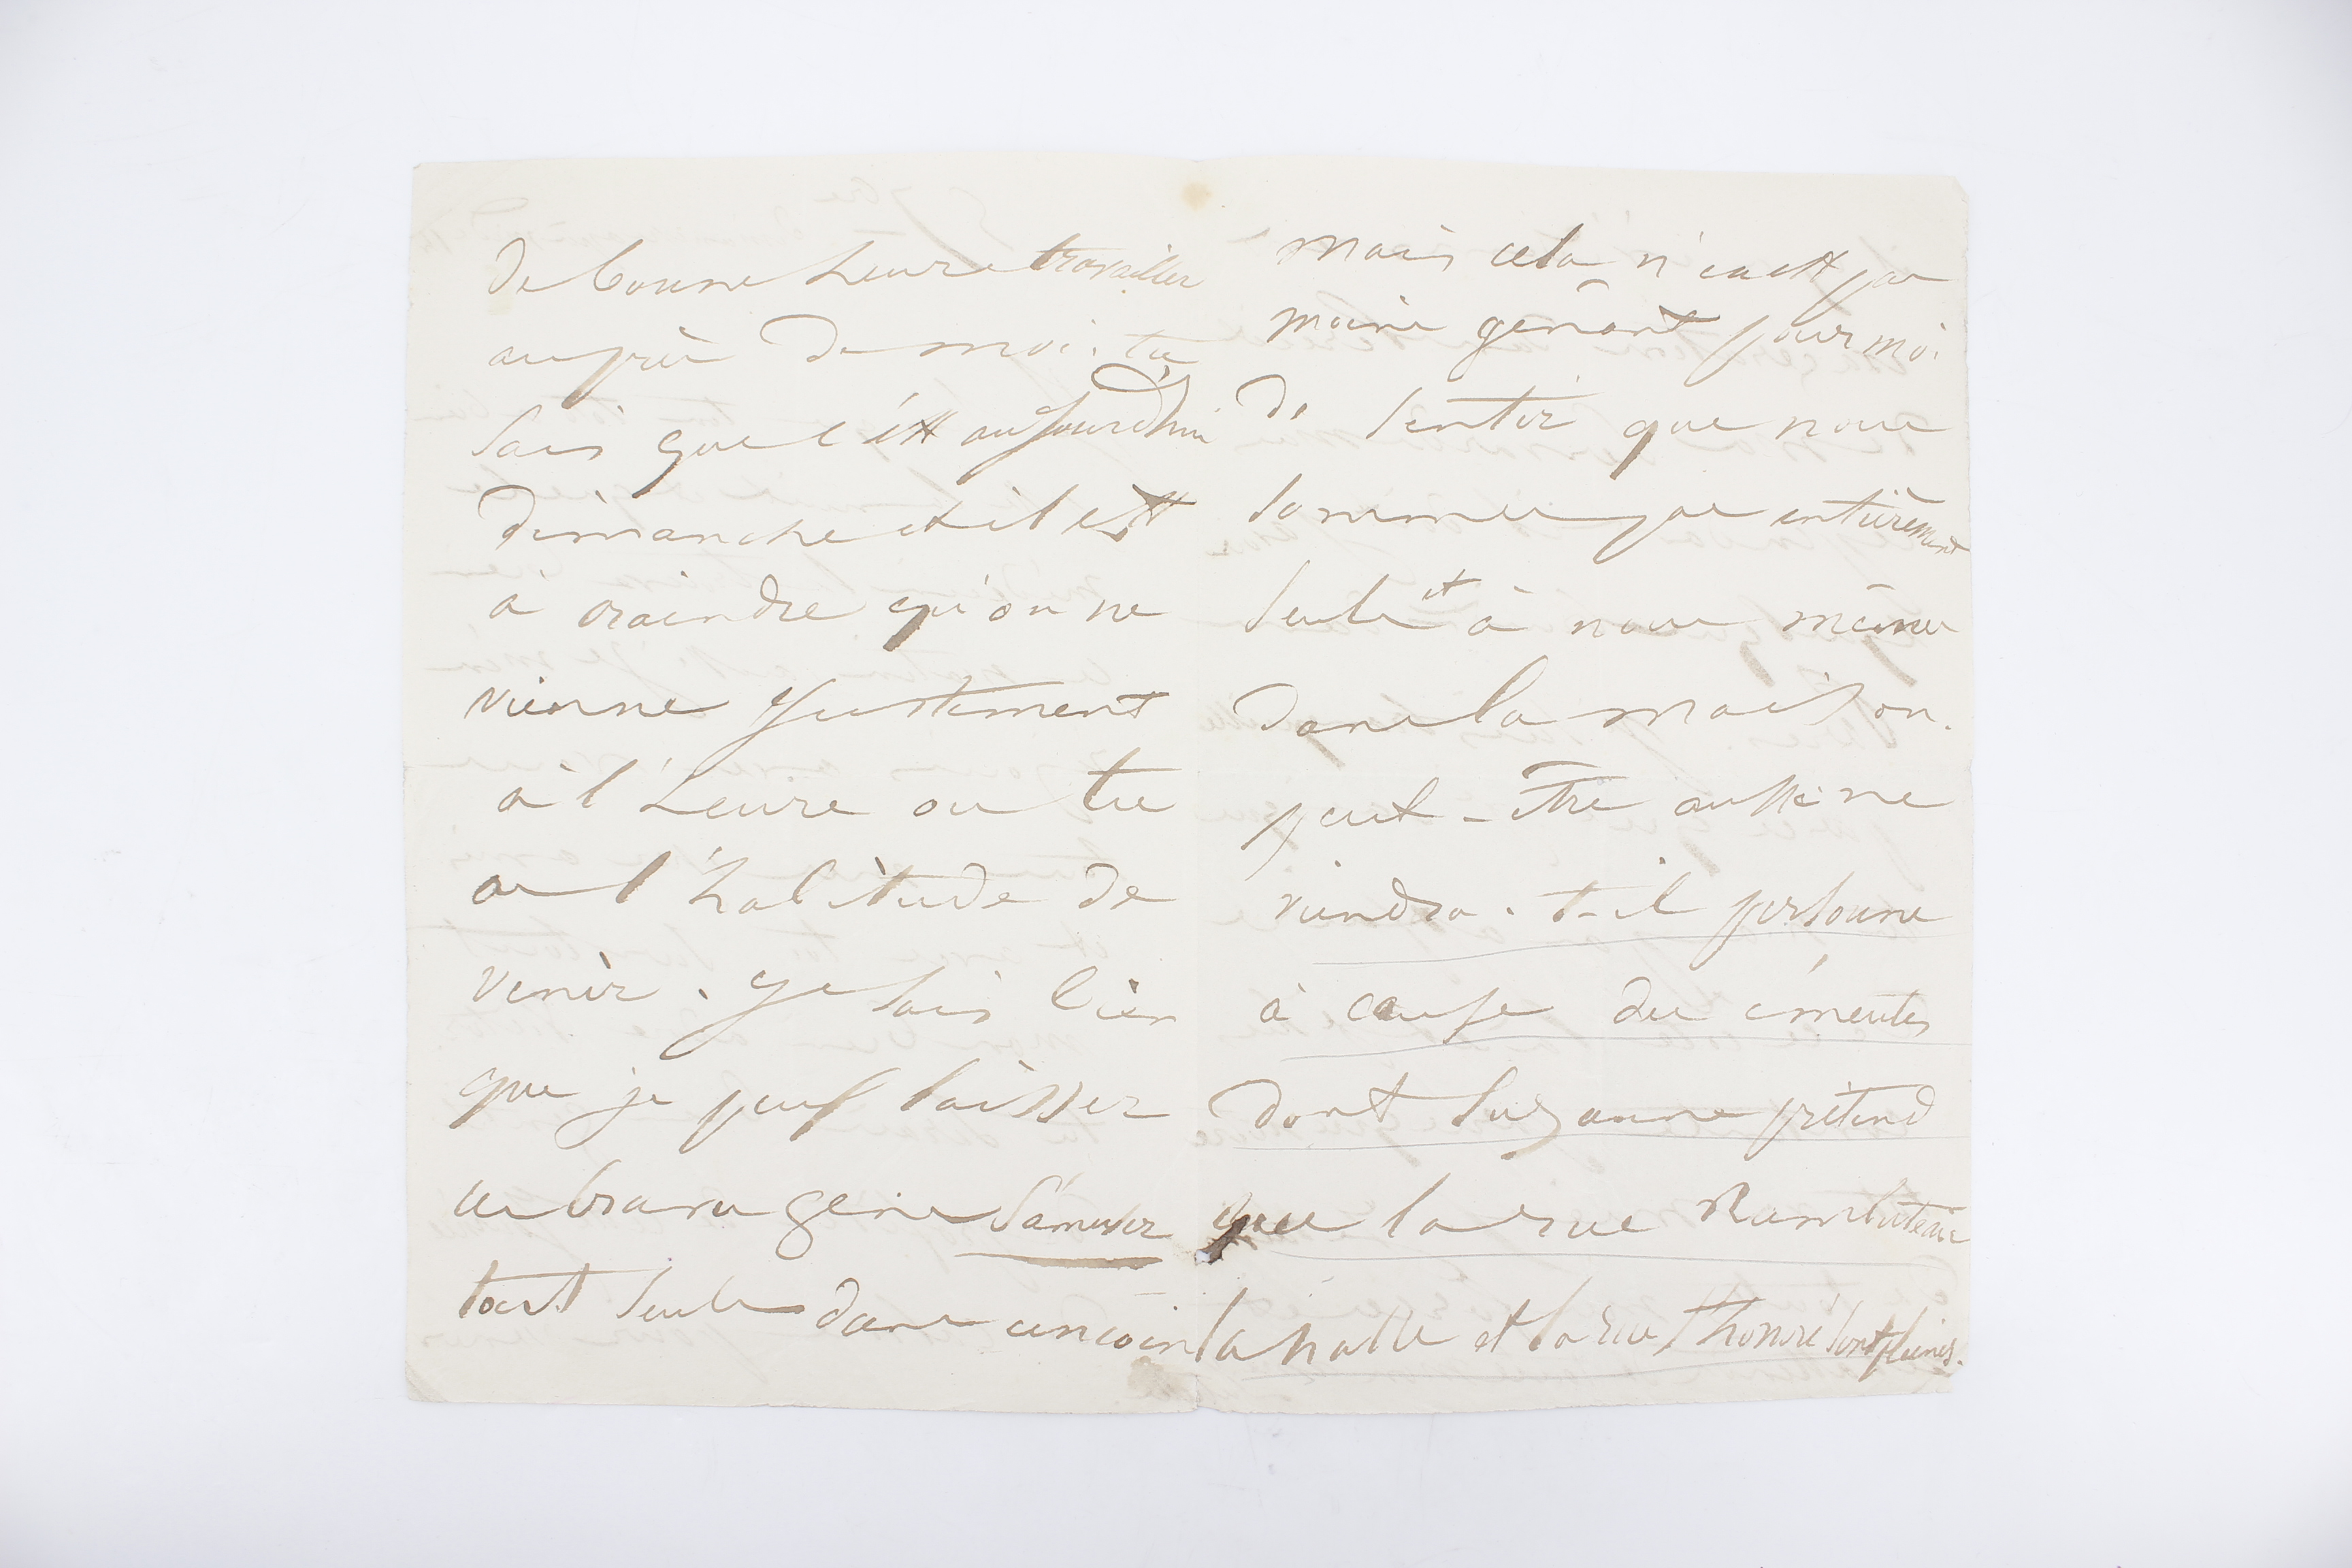 de bonne heure travailler
auprès de moi. tu
sais que c'est aujourd'hui
dimanche et il est
à craindre qu'on ne
vienne justement
à l'heure où tu
as l'habitude de
venir. Je sais bien
que je puis laisser
ces braves gens s'amuser
tout seuls dans un coin
mais cela n'en est pas
moins gênant pour moi
de sentir que nous
sommes pas entièrement
seuls et à nous mêmes
dans la maison.
peut-être aussi ne
viendra-t-il personne
à cause des émeutes
dont Suzanne prétend
que la rue Rambuteau
la halle et la rue St honoré sont pleines.